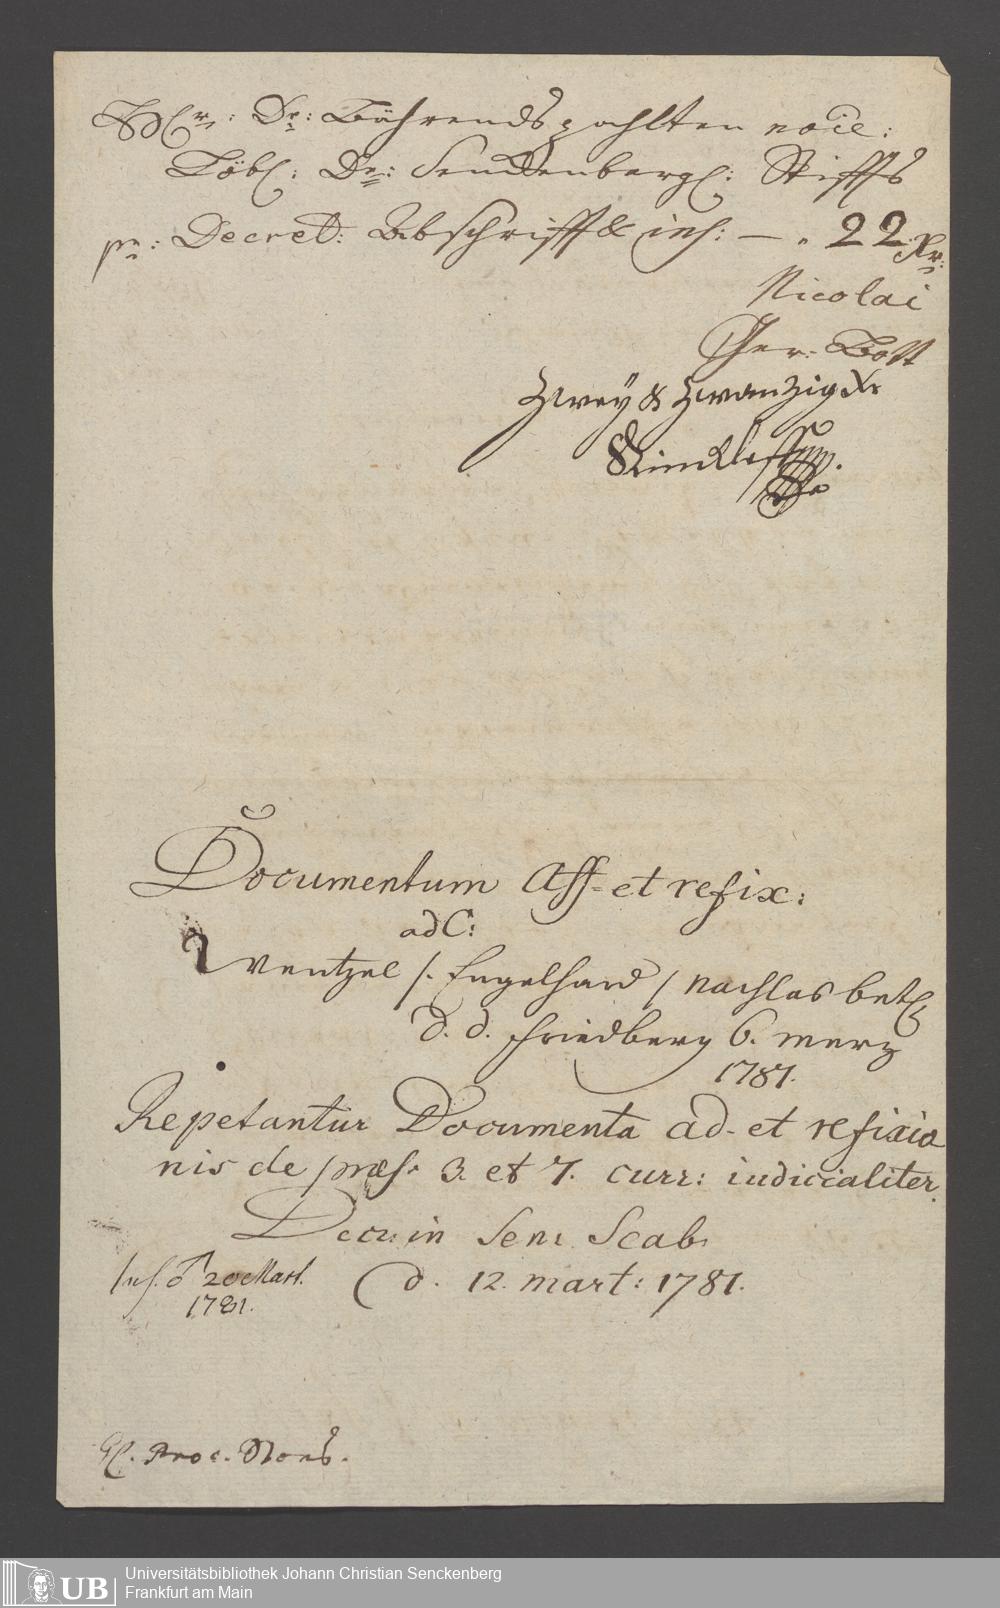 Dr: Bährends zahlten noie:
Löbl: Dr: Senckenbergl: Stiffts
pr: Decret: Abschrifft & ins: — . 22 Xr:
Nicolai
Ger: Bott
Zwey & Zwanzig Xr
Documentum Aff- et refix:
ad C:
Wentzel /. Engelhard / Nachlas betl
d. d. Friedberg 6. Merz
1781.
Repetantur Documenta ad- et refixio
nis de præs. 3. et 7. curr: iudicialiter.
Decr: in Sen: Scab.
Ins. ♂ 20 Mart. d. 12. mart: 1781.
1781.
H. Proc. Mors.
UB
Universitätsbibliothek Johann Christian Senckenberg
Frankfurt am Main